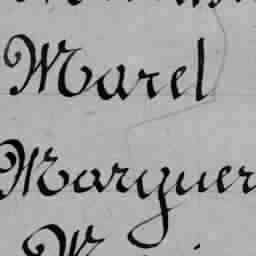 Marel
Marguer